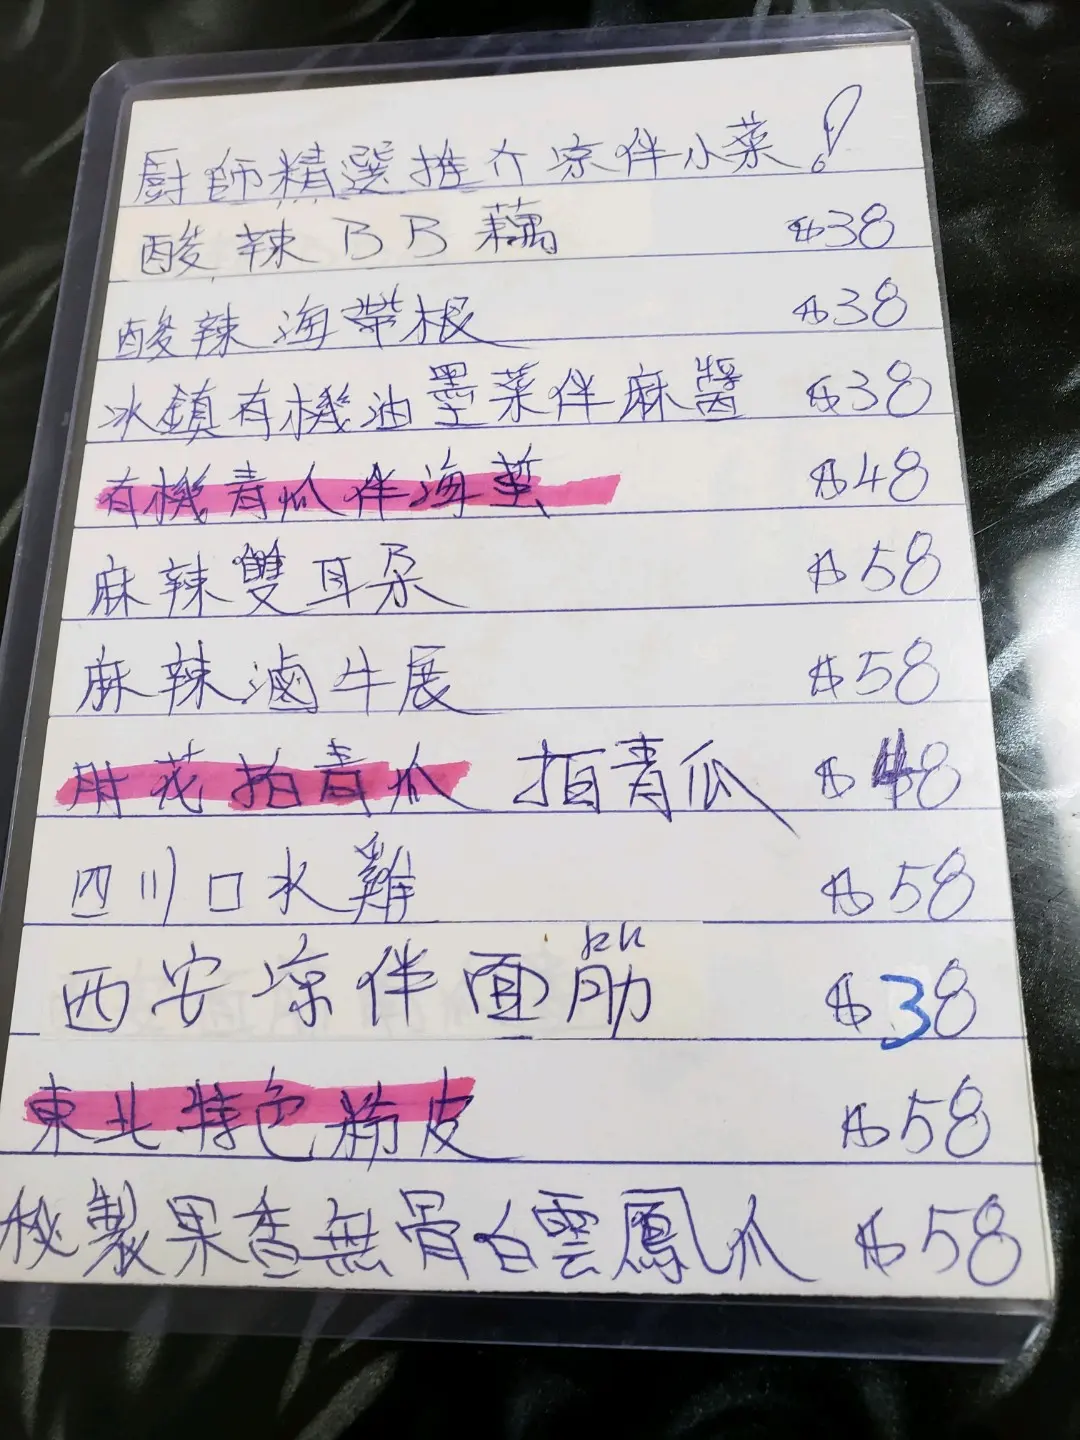 廚師精選推介凉伴小菜!
酸辣BB藕 $38
酸辣海帶根 $38
冰鎮有機油墨菜伴麻醬 $38
有機青瓜伴海蜇 $48
麻辣雙耳朵 $58
麻辣滷牛展 $58
肘花拍青瓜 拍青瓜 $48
四川口水雞 $58
西安凉伴面筋 $38
東北特色粉皮 $58
秘製果香無骨白雲鳳爪 $58